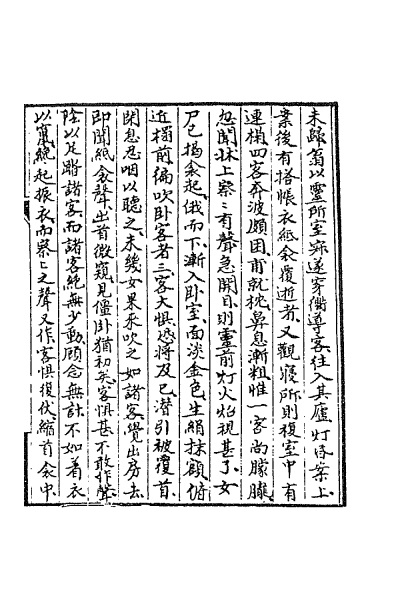 未歸翁以靈所室寂遂穿衢導客往入其廬灯昏案上
案後有搭帳衣紙衾覆逝者又觀寢所則複室中有
連榻四客奔波頗困甫就枕鼻息漸粗惟一客尚朦朧
忽聞牀上察〻有聲急開目則靈前灯火炤視甚了女
尸已揭衾起俄而下漸入卧室面淡金色生絹抹額俯
近榻前徧吹卧客者三客大懼恐將及已潛引被覆首
閉息忍咽以聽之未幾女果來吹之如諸客覺出房去
即聞紙衾聲出首微窺見僵卧猶初矣客懼甚不敢作聲
陰以足踏諸客而諸客絕無少動顧念無計不如着衣
以竄纔起振衣而察〻之聲又作客懼復伏縮首衾中